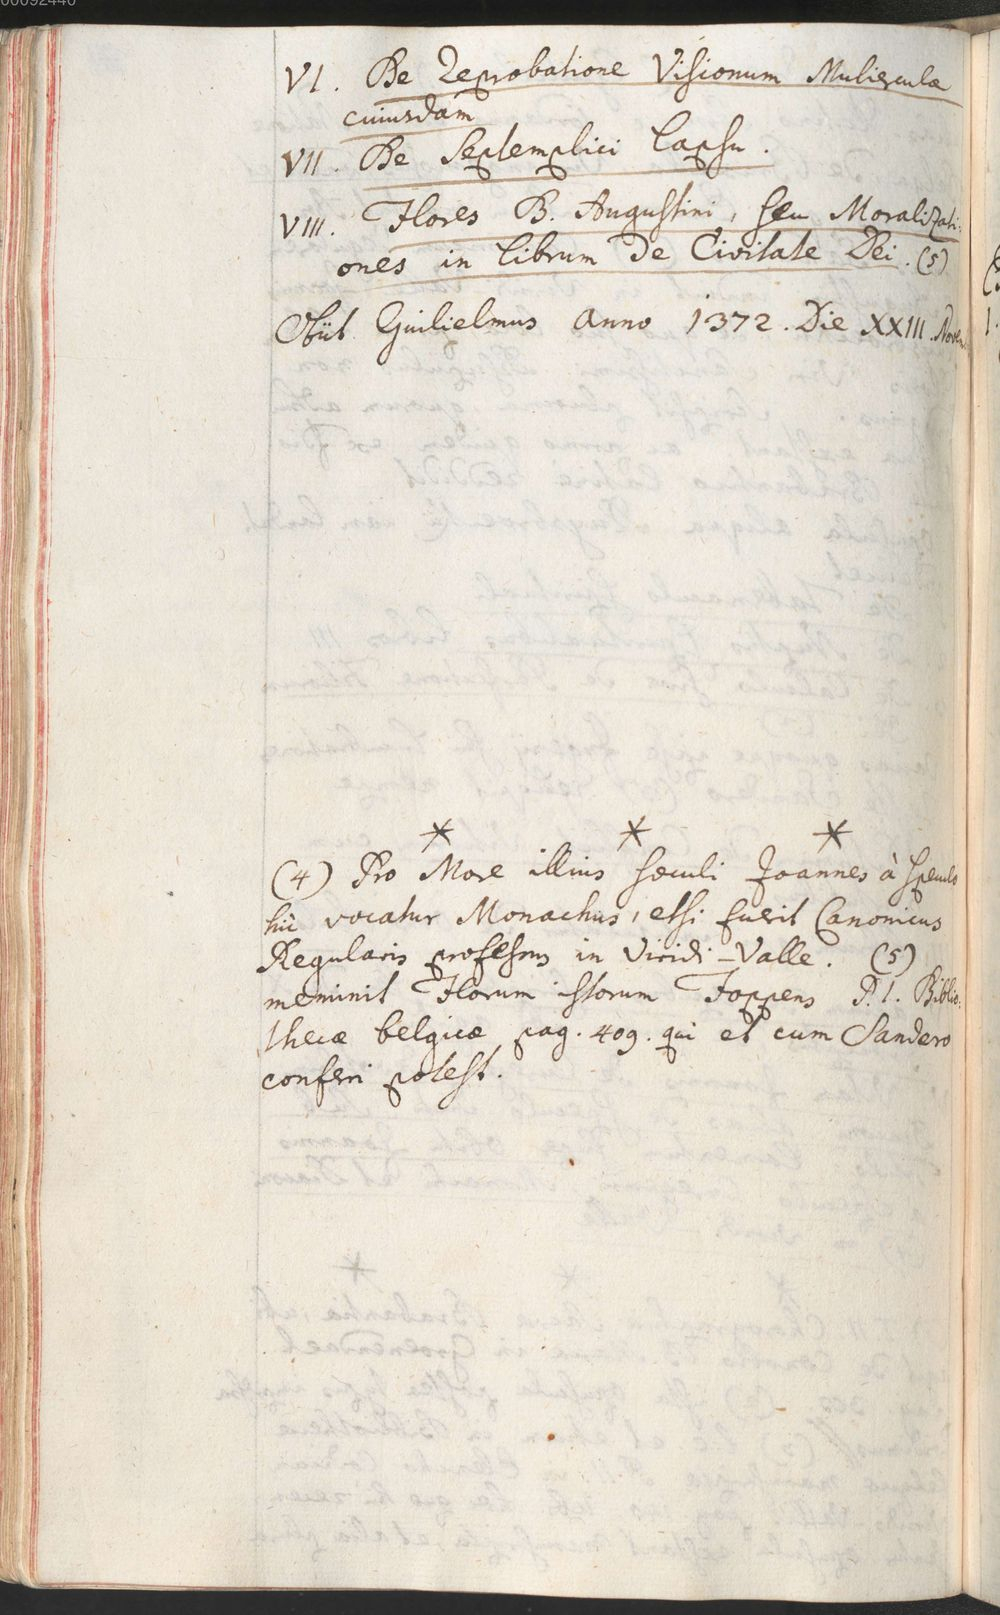 00092440
VI. De Reprobatione Visionum Mulierculæ
cuiusdam
VII. De Septemplici Capsu.
VIII. Flores B. Augustini, seu Moralizati:
ones in librum De Civitate Dei. (5)
Obiit Guilielmus anno 1372. Die XXIII. Novem
* * *
(4) Pro More illius sœculi Joannes à Speculo
hic vocatur Monachus, etsi fuerit Canonicus
Regularis professus in Viridi-Valle. (5)
meminit Florum istorum Foppens P. 1. Biblio:
thecæ belgicæ pag. 409. qui et cum Sandero
conferri potest.